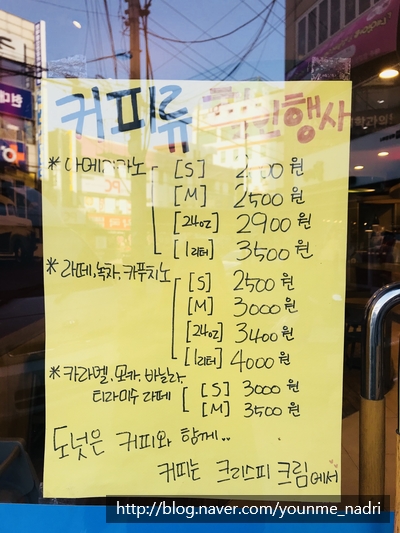 커피류 할인행사
* 아메리카노 [S] 2,000원
[M] 2500원
[24oz] 2900원
[1리터] 3500원
* 라떼,녹차,카푸치노 [S] 2500원
[M] 3000원
[24oz] 3400원
[1리터] 4000원
* 카라멜,모카,바닐라,
티라미수 라떼 [S] 3000원
[M] 3500원
도넛은 커피와 함께..
커피는 크리스피 크림에서
http://blog.naver.com/younme_nadri